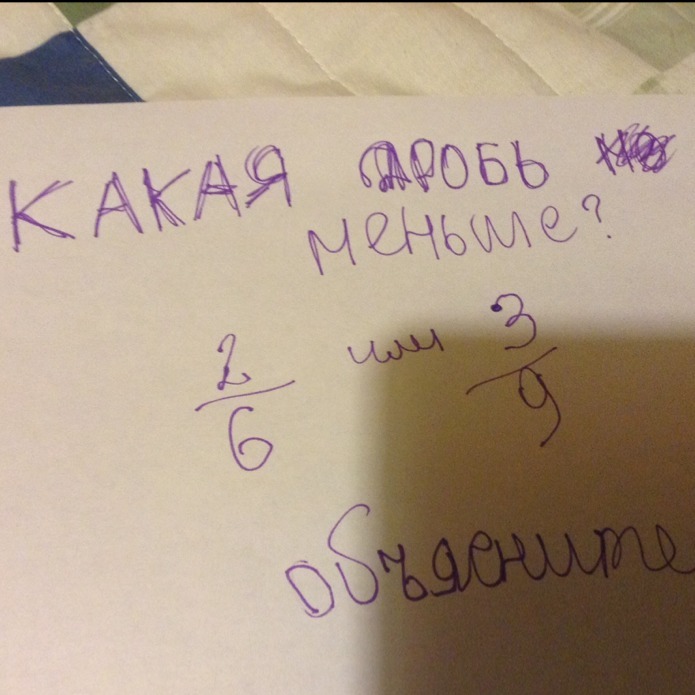 КАКАЯ ДРОБЬ
меньше?
2/6 или 3/9
объясните